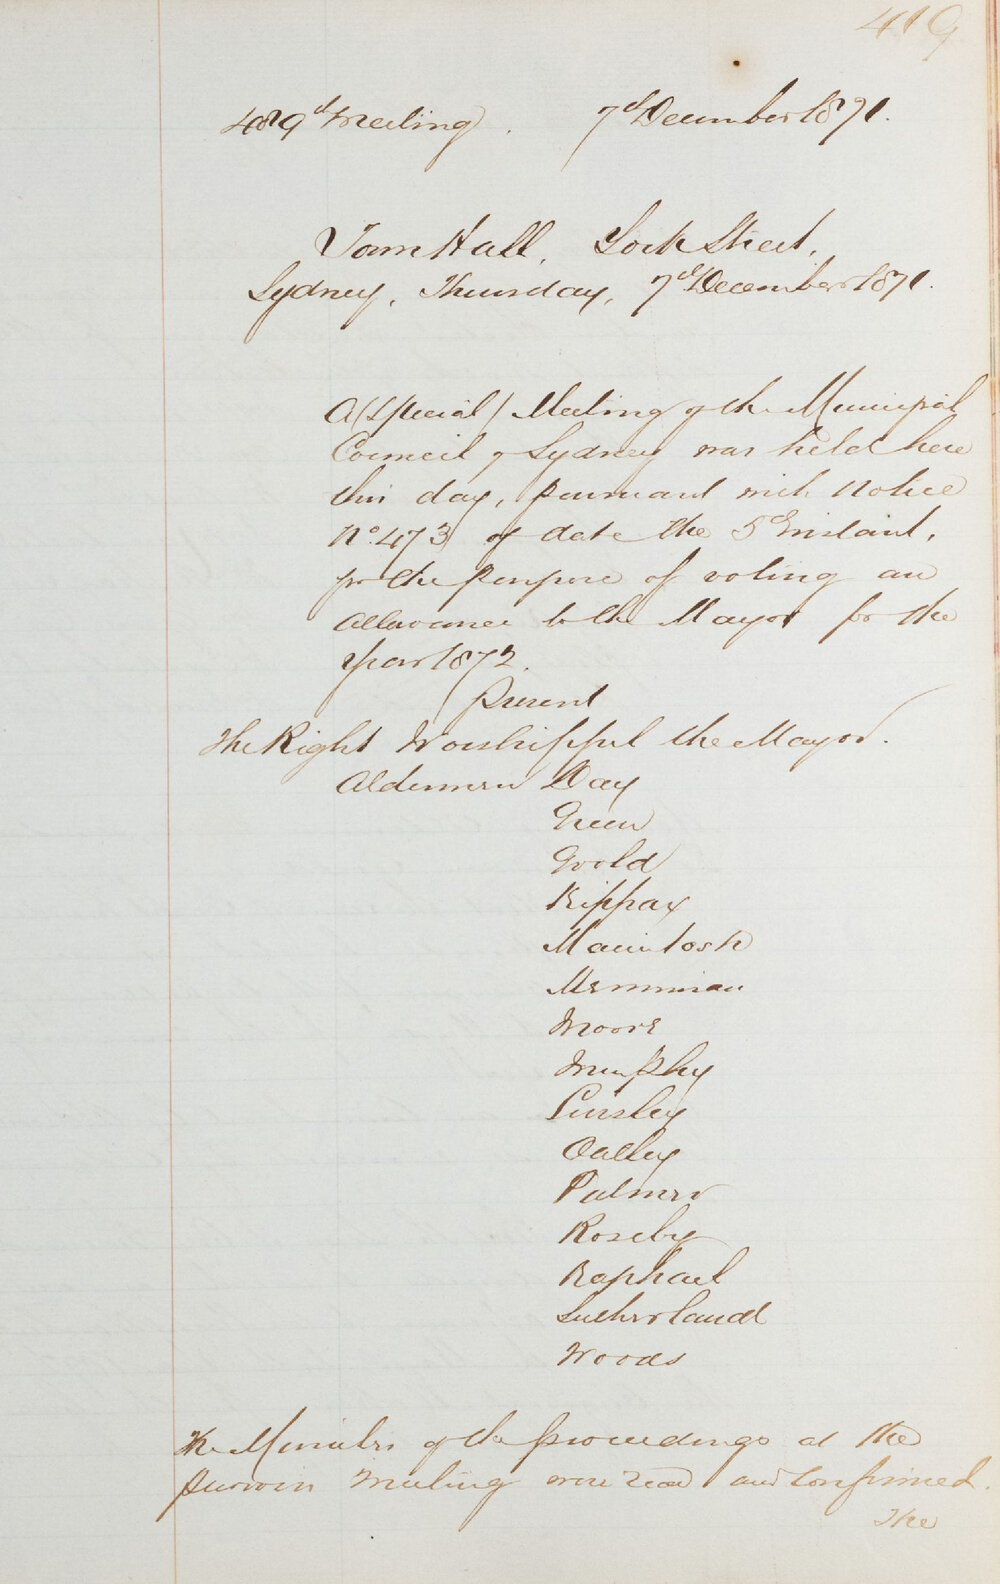 419
489th Meeting. 7th December 1871.
Town Hall, York Street,
Sydney, Thursday, 7th December 1871.
A (Special) Meeting of the Municipal
Council of Sydney was held here
this day, pursuant with Notice
No. 473 of date the 5th instant,
for the purpose of voting an
allowance to the Mayor for the
year 1872.
Present
The Right Worshipful the Mayor.
Aldermen Day
Green
Goold
Kippax
Macintosh
Merriman
Moore
Murphy
Oatley
Palmer
Roseby
Raphael
Sutherland
Woods
The Minutes of the proceedings at the
previous meeting were read and confirmed.
The